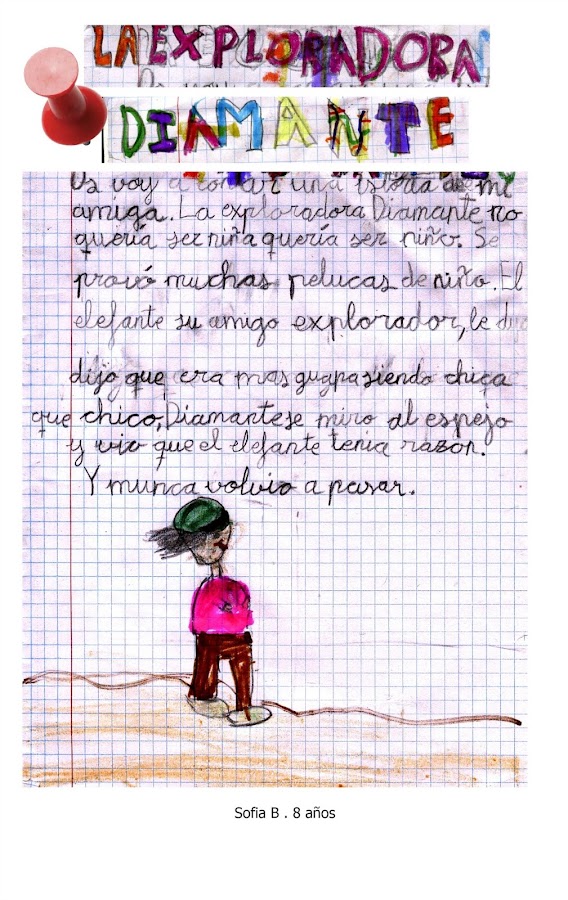 LA EXPLORADORA
DIAMANTE
Os voy a contar una istoria de mi
amiga. La exploradora Diamante no
quería ser niña quería ser niño. Se
provó muchas pelucas de niño. El
elefante su amigo explorador, le dijo
dijo que era mas guapa siendo chica
que chico, Diamante se miro al espejo
y vio que el elefante tenia razon.
Y nunca volvio a pasar.
Sofia B . 8 años